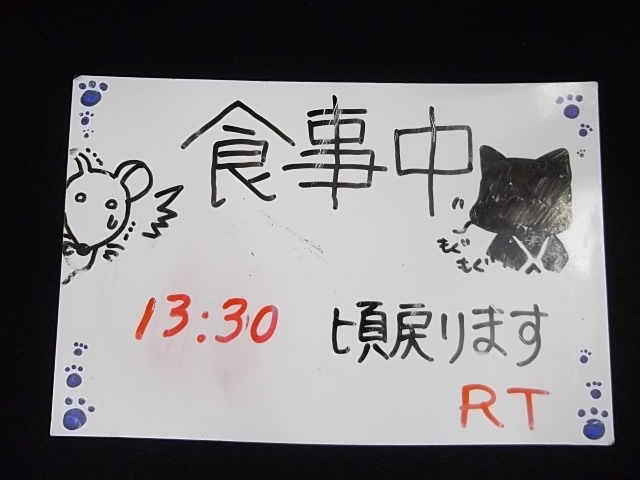 食事中
もぐ
もぐ"
13:30 頃戻ります
RT